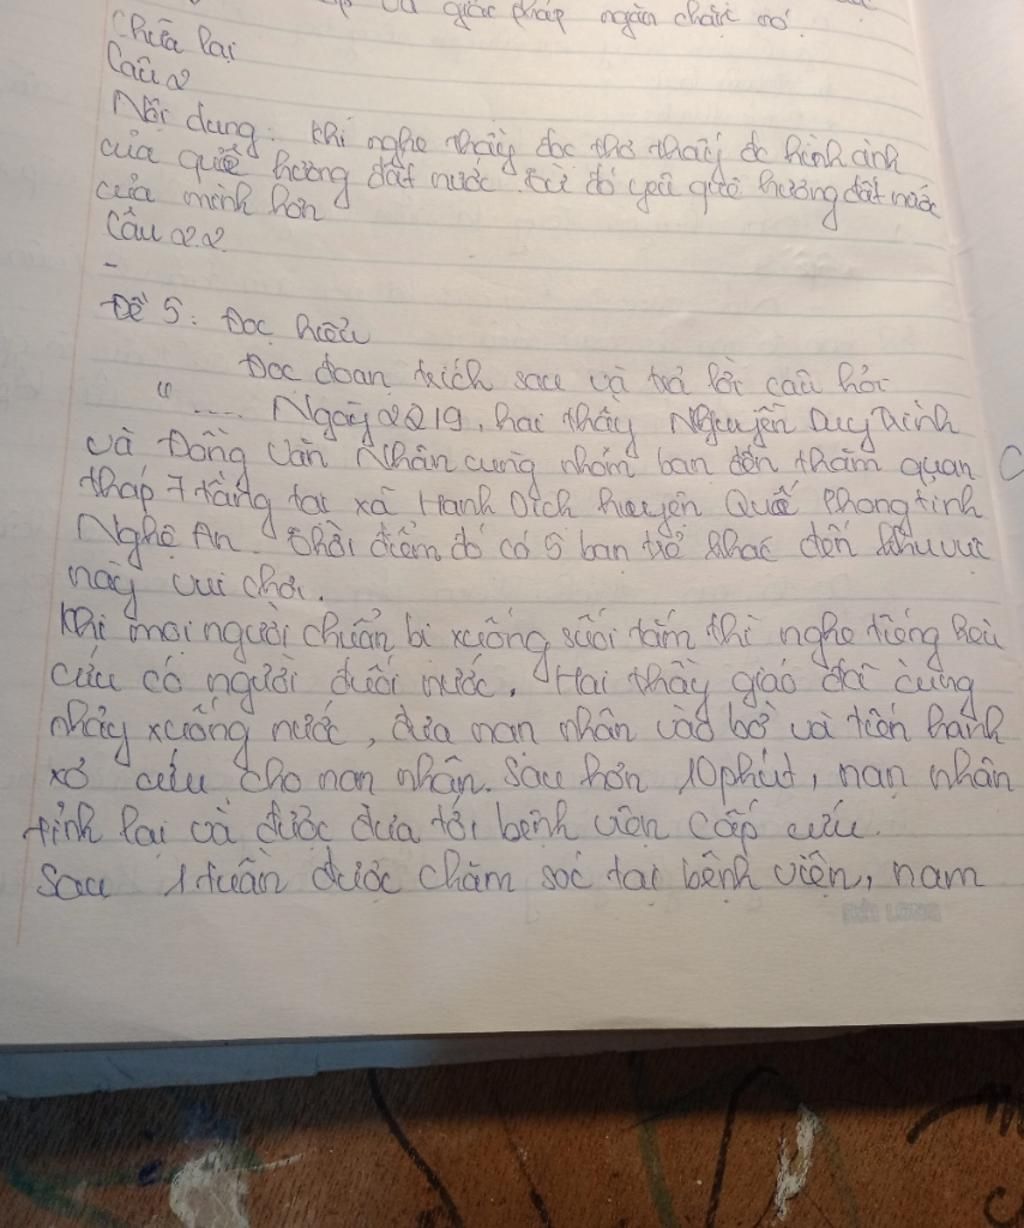 và giác pháp ngăn chặn nó.
Chữa lại
Câu 2
Nội dung: Khi nghe thầy đọc thơ thấy đc hình ảnh
của quê hương đất nước từ đó yêu quê hương đất nước
của mình hơn
Câu 22.
-
Đề 5: Đọc hiểu
Đọc đoạn trích sau và trả lời câu hỏi
" .... Ngày 2219, hai thầy Nguyễn Duy Trinh
và Đồng Văn Nhân cùng nhóm bạn đến thăm quan
tháp 7 tầng tại xã Hạnh Dịch huyện Quế Phong tỉnh
Nghệ An. Thời điểm đó có 5 bạn trẻ khác đến khu vực
này vui chơi.
Khi mọi người chuẩn bị xuống suối tắm thì nghe tiếng kêu
cứu có người đuối nước. Hai thầy giáo đã cùng
nhảy xuống nước, đưa nạn nhân vào bờ và tiến hành
xơ cứu cho nạn nhân. Sau hơn 10 phút, nạn nhân
tỉnh lại và được đưa tới bệnh viện cấp cứu.
Sau 1 tuần được chăm sóc tại bệnh viện, nam
HẢI LONG